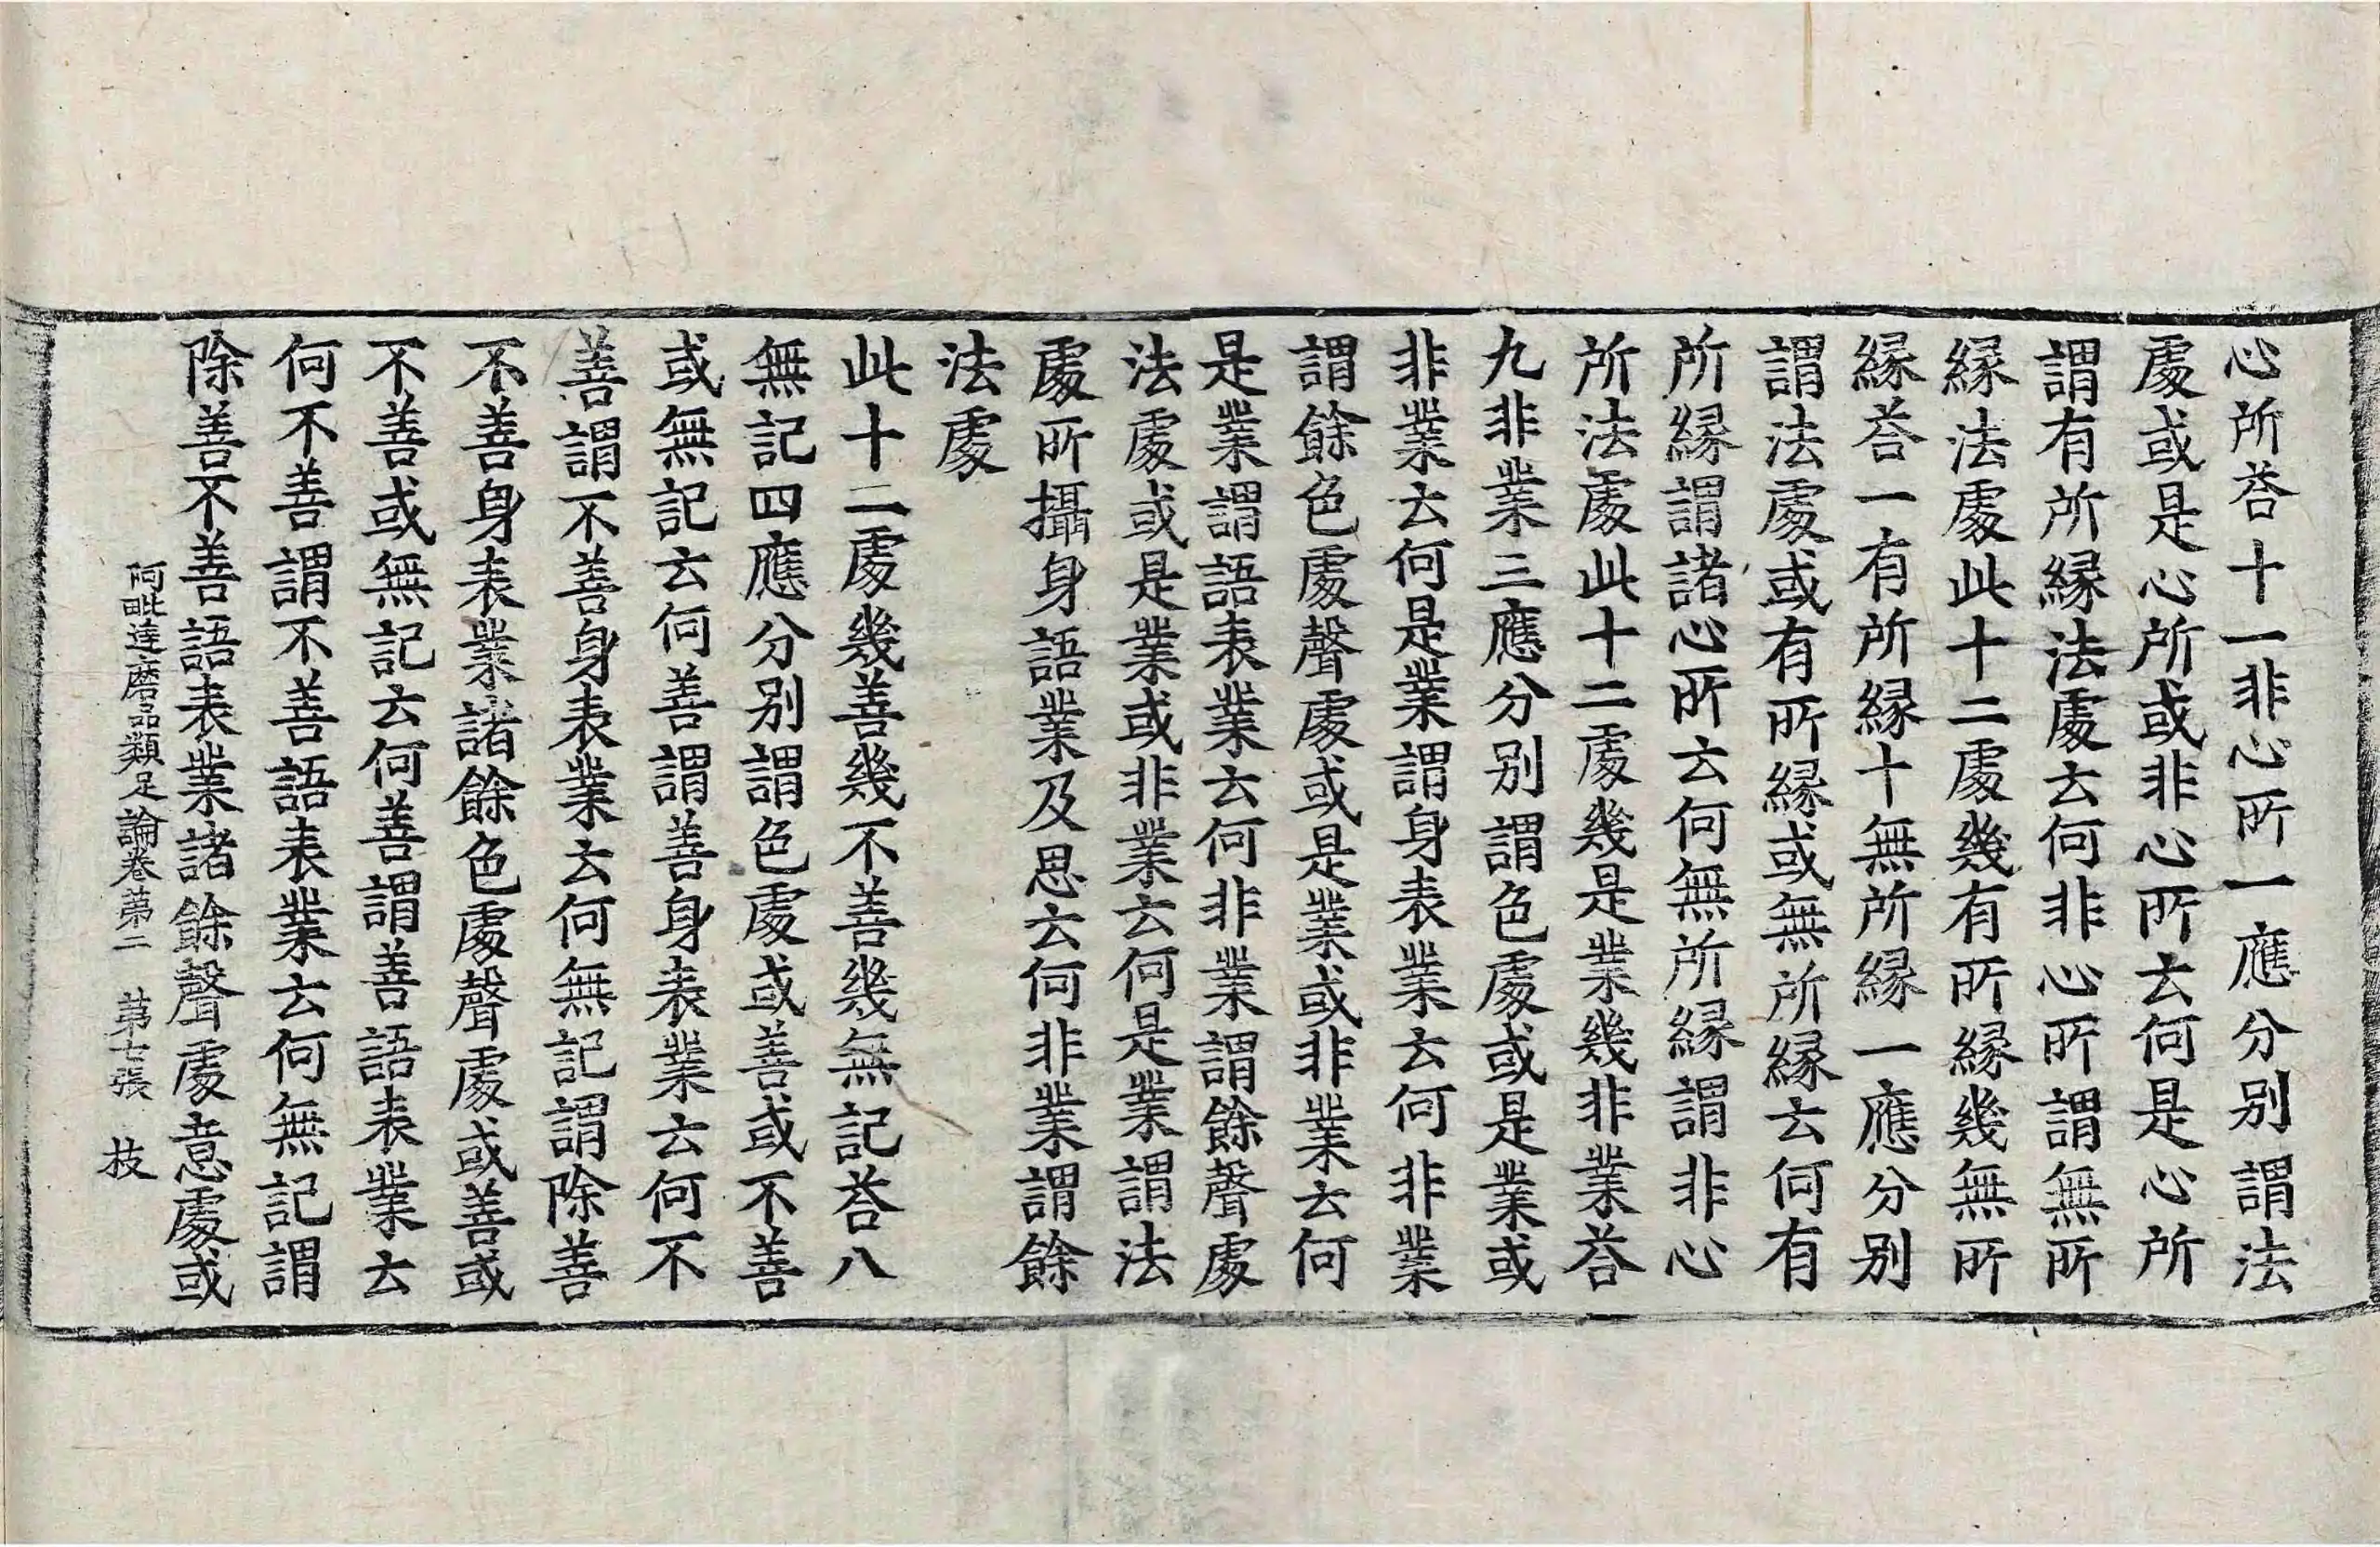 心所荅十一非心所一應分別謂法
處或是心所或非心所云何是心所
謂有所緣法處云何非心所謂無所
緣法處此十二處幾有所緣幾無所
緣荅一有所緣十無所緣一應分別
謂法處或有所緣或無所緣云何有
所緣謂諸心所云何無所緣謂非心
所法處此十二處幾是業幾非業荅
九非業三應分別謂色處或是業或
非業云何是業謂身表業云何非業
謂餘色處聲處或是業或非業云何
是業謂語表業云何非業謂餘聲處
法處或是業或非業云何是業謂法
處所攝身語業及思云何非業謂餘
法處
此十二處幾善幾不善幾無記荅八
無記四應分別謂色處或善或不善
或無記云何善謂善身表業云何不
善謂不善身表業云何無記謂除善
不善身表業諸餘色處聲處或善或
不善或無記云何善謂善語表業云
何不善謂不善語表業云何無記謂
除善不善語表業諸餘聲處意處或
阿毗達磨品類足論卷第二 第七張 技